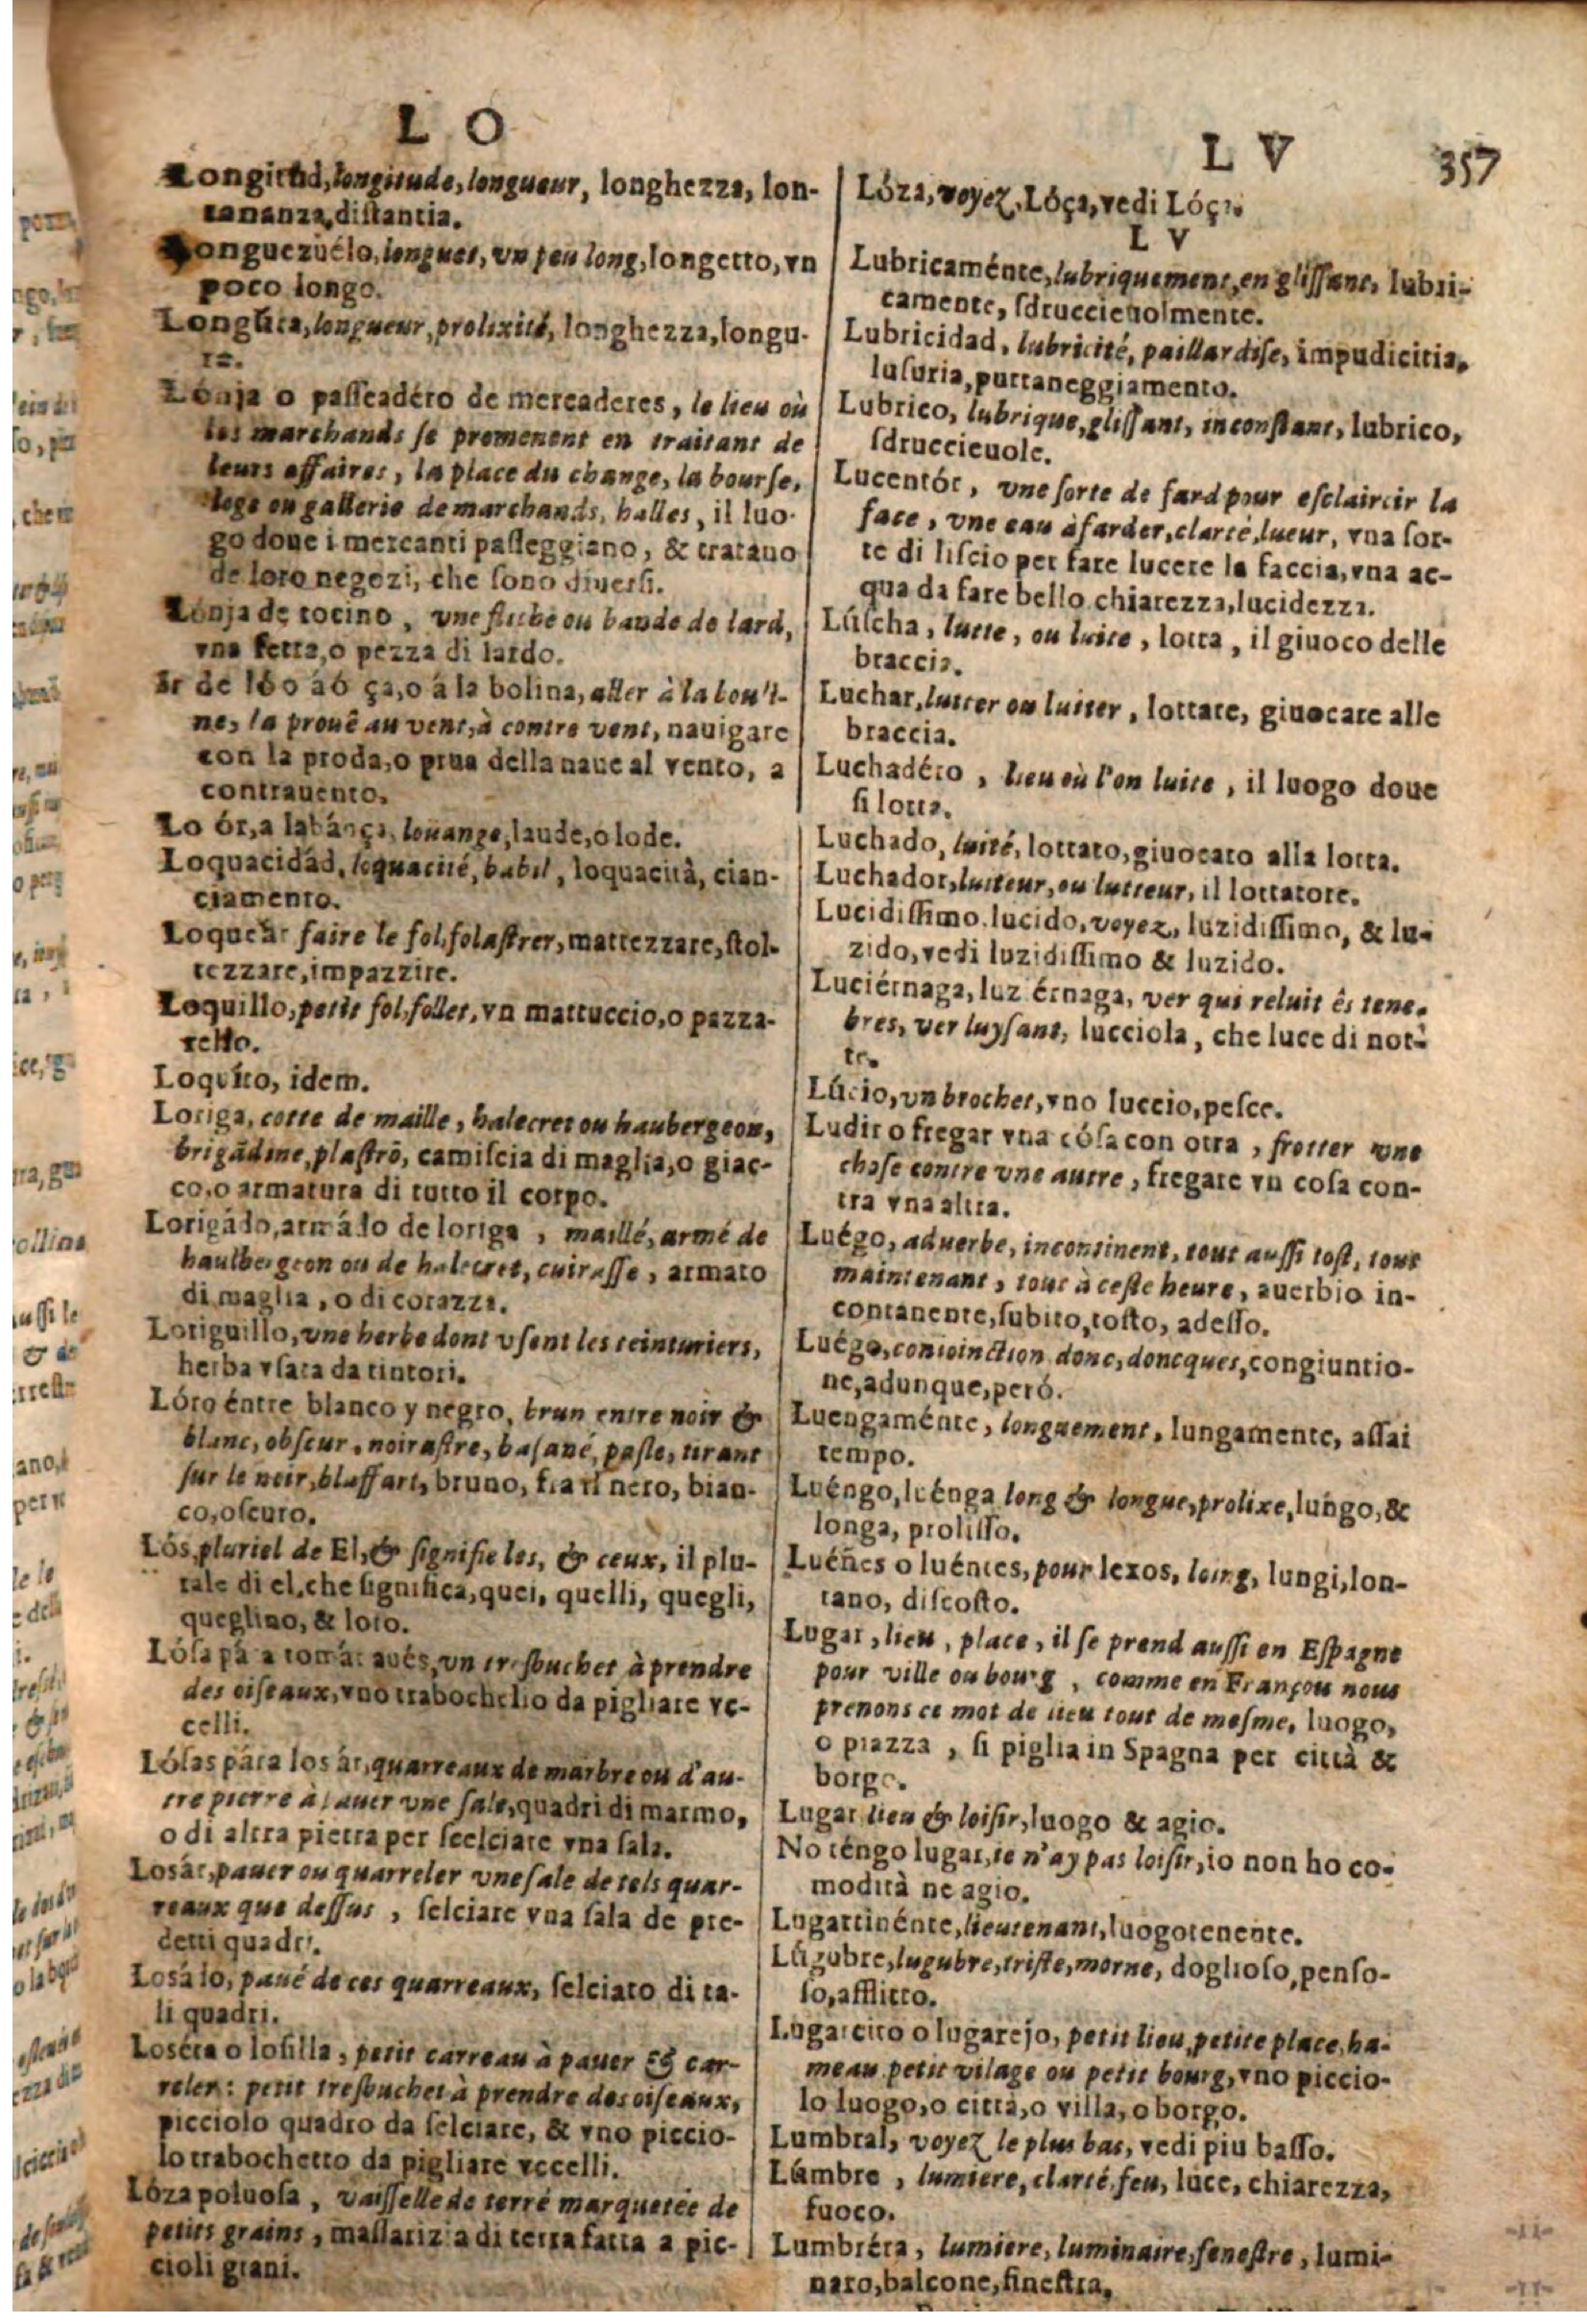 L O
Longitud, longitude, longueur, longhezza, lon-
tananza, distantia.
Longuezuélo, longuet, vn peu long, longetto, vn
poco longo.
Longúra, longueur, prolixité, longhezza, longu-
ra.
Lónja o passeadéro de mercaderes, le lieu où
les marchands se promenent en traitant de
leurs affaires, la place du change, la bourse,
loge ou gallerie de marchands, halles, il luo-
go doue i mercanti passeggiano, & tratano
de loro negozi, che sono diuersi.
Lónja de tocino, vne fliche ou bande de lard,
vna fetta, o pezza di lardo.
Ir de lóo áó ça, o á la bolina, aller à la bouli-
ne, la prouë au vent, à contre vent, nauigare
con la proda, o prua della naue al vento, a
contrauento.
Lo ór, alabánça, louange, laude, o lode.
Loquacidád, loquacité, babil, loquacità, cian-
ciamento.
Loqueár faire le fol, folastrer, mattezzare, stol-
tezzare, impazzire.
Loquillo, petit fol, follet, vn mattuccio, o pazza-
rello.
Loquíto, idem.
Loriga, cotte de maille, halecret ou haubergeon,
brigādine, plastrō, camiscia di maglia, o giac-
co, o armatura di tutto il corpo.
Lorigádo, armádo de loriga, maillé, armé de
haulbergeon ou de halecret, cuirasse, armato
di maglia, o di corazza.
Loriguillo, vne herbe dont vsent les teinturiers,
herba vsata da tintori.
Lóro éntre blanco y negro, brun entre noir &
blanc, obscur, noirastre, basané, pasle, tirant
sur le noir, blaffart, bruno, fra il nero, bian-
co, oscuro.
Lós, pluriel de El, & signifie les, & ceux, il plu-
rale di el, che significa, quei, quelli, quegli,
queglino, & loro.
Lósa pára tomár aués, vn tresbuchet à prendre
des oiseaux, vno trabochello da pigliare vc-
celli.
Lósas pára losár, quarreaux de marbre ou d'au-
tre pierre à pauer vne sale, quadri di marmo,
o di altra pietra per seelciare vna sala.
Losár, pauer ou quarreler vne sale de tels quar-
reaux que dessus, selciare vna sala de pre-
detti quadri.
Losádo, paué de ces quarreaux, selciato di ta-
li quadri.
Loséta o losilla, petit carreau à pauer & car-
reler: petit tresbuchet à prendre des oiseaux,
picciolo quadro da selciare, & vno piccio-
lo trabochetto da pigliare vccelli.
Lóza poluosa, vaisselle de terré marquetée de
petits grains, massarizia di terra fatta a pic-
cioli grani.
L V 357
Lóza, voyez, Lóça, vedi Lóça.
L V
Lubricaménte, lubriquement, en glissant, lubri-
camente, sdruccieuolmente.
Lubricidad, lubricité, paillardise, impudicitia,
lusuria, puttaneggiamento.
Lubrico, lubrique, glissant, inconstant, lubrico,
sdruccieuole.
Lucentór, vne sorte de fard pour esclaircir la
face, vne eau à farder, clarté, lueur, vna sor-
te di liscio per fare lucere la faccia, vna ac-
qua da fare bello chiarezza, lucidezza.
Lúscha, lutte, ou luite, lotta, il giuoco delle
braccia.
Luchar, lutter ou luiter, lottare, giuocare alle
braccia.
Luchadéro, lieu où l'on luite, il luogo doue
si lotta.
Luchado, luité, lottato, giuocato alla lotta.
Luchador, luiteur, ou lutteur, il lottatore.
Lucidissimo. lucido, voyez, luzidissimo, & lu-
zido, vedi luzidissimo & luzido.
Luciérnaga, luz érnaga, ver qui reluit és tene-
bres, ver luysant, lucciola, che luce di not-
te.
Lúcio, vn brochet, vno luccio, pesce.
Ludir o fregar vna cósa con otra, frotter vne
chose contre vne autre, fregare vn cosa con-
tra vna altra.
Luégo, aduerbe, incontinent, tout aussi tost, tout
maintenant, tout à ceste heure, auerbio in-
contanente, subito, tosto, adesso.
Luégo, conioinction donc, doncques, congiuntio-
ne, adunque, peró.
Luengaménte, longuement, lungamente, assai
tempo.
Luéngo, luénga long & longue, prolixe, lungo, &
longa, prolisso.
Luéñes o luéntes, pour lexos, loing, lungi, lon-
tano, discosto.
Lugar, lieu, place, il se prend aussi en Espagne
pour ville ou bourg, comme en François nous
prenons ce mot de lieu tout de mesme, luogo,
o piazza, si piglia in Spagna per città &
borgo.
Lugar lieu & loisir, luogo & agio.
No téngo lugar, ie n'ay pas loisir, io non ho co-
modità ne agio.
Lugartinénte, lieutenant, luogotenente.
Lúgubre, lugubre, triste, morne, doglioso, penso-
so, afflitto.
Lugarcito o lugarejo, petit lieu, petite place, ha-
meau petit vilage ou petit bourg, vno piccio-
lo luogo, o citta, o villa, o borgo.
Lumbral, voyez le plus bas, vedi piu basso.
Lúmbre, lumiere, clarté, feu, luce, chiarezza,
fuoco.
Lumbréra, lumiere, luminaire, fenestre, lumi-
naro, balcone, finestra,